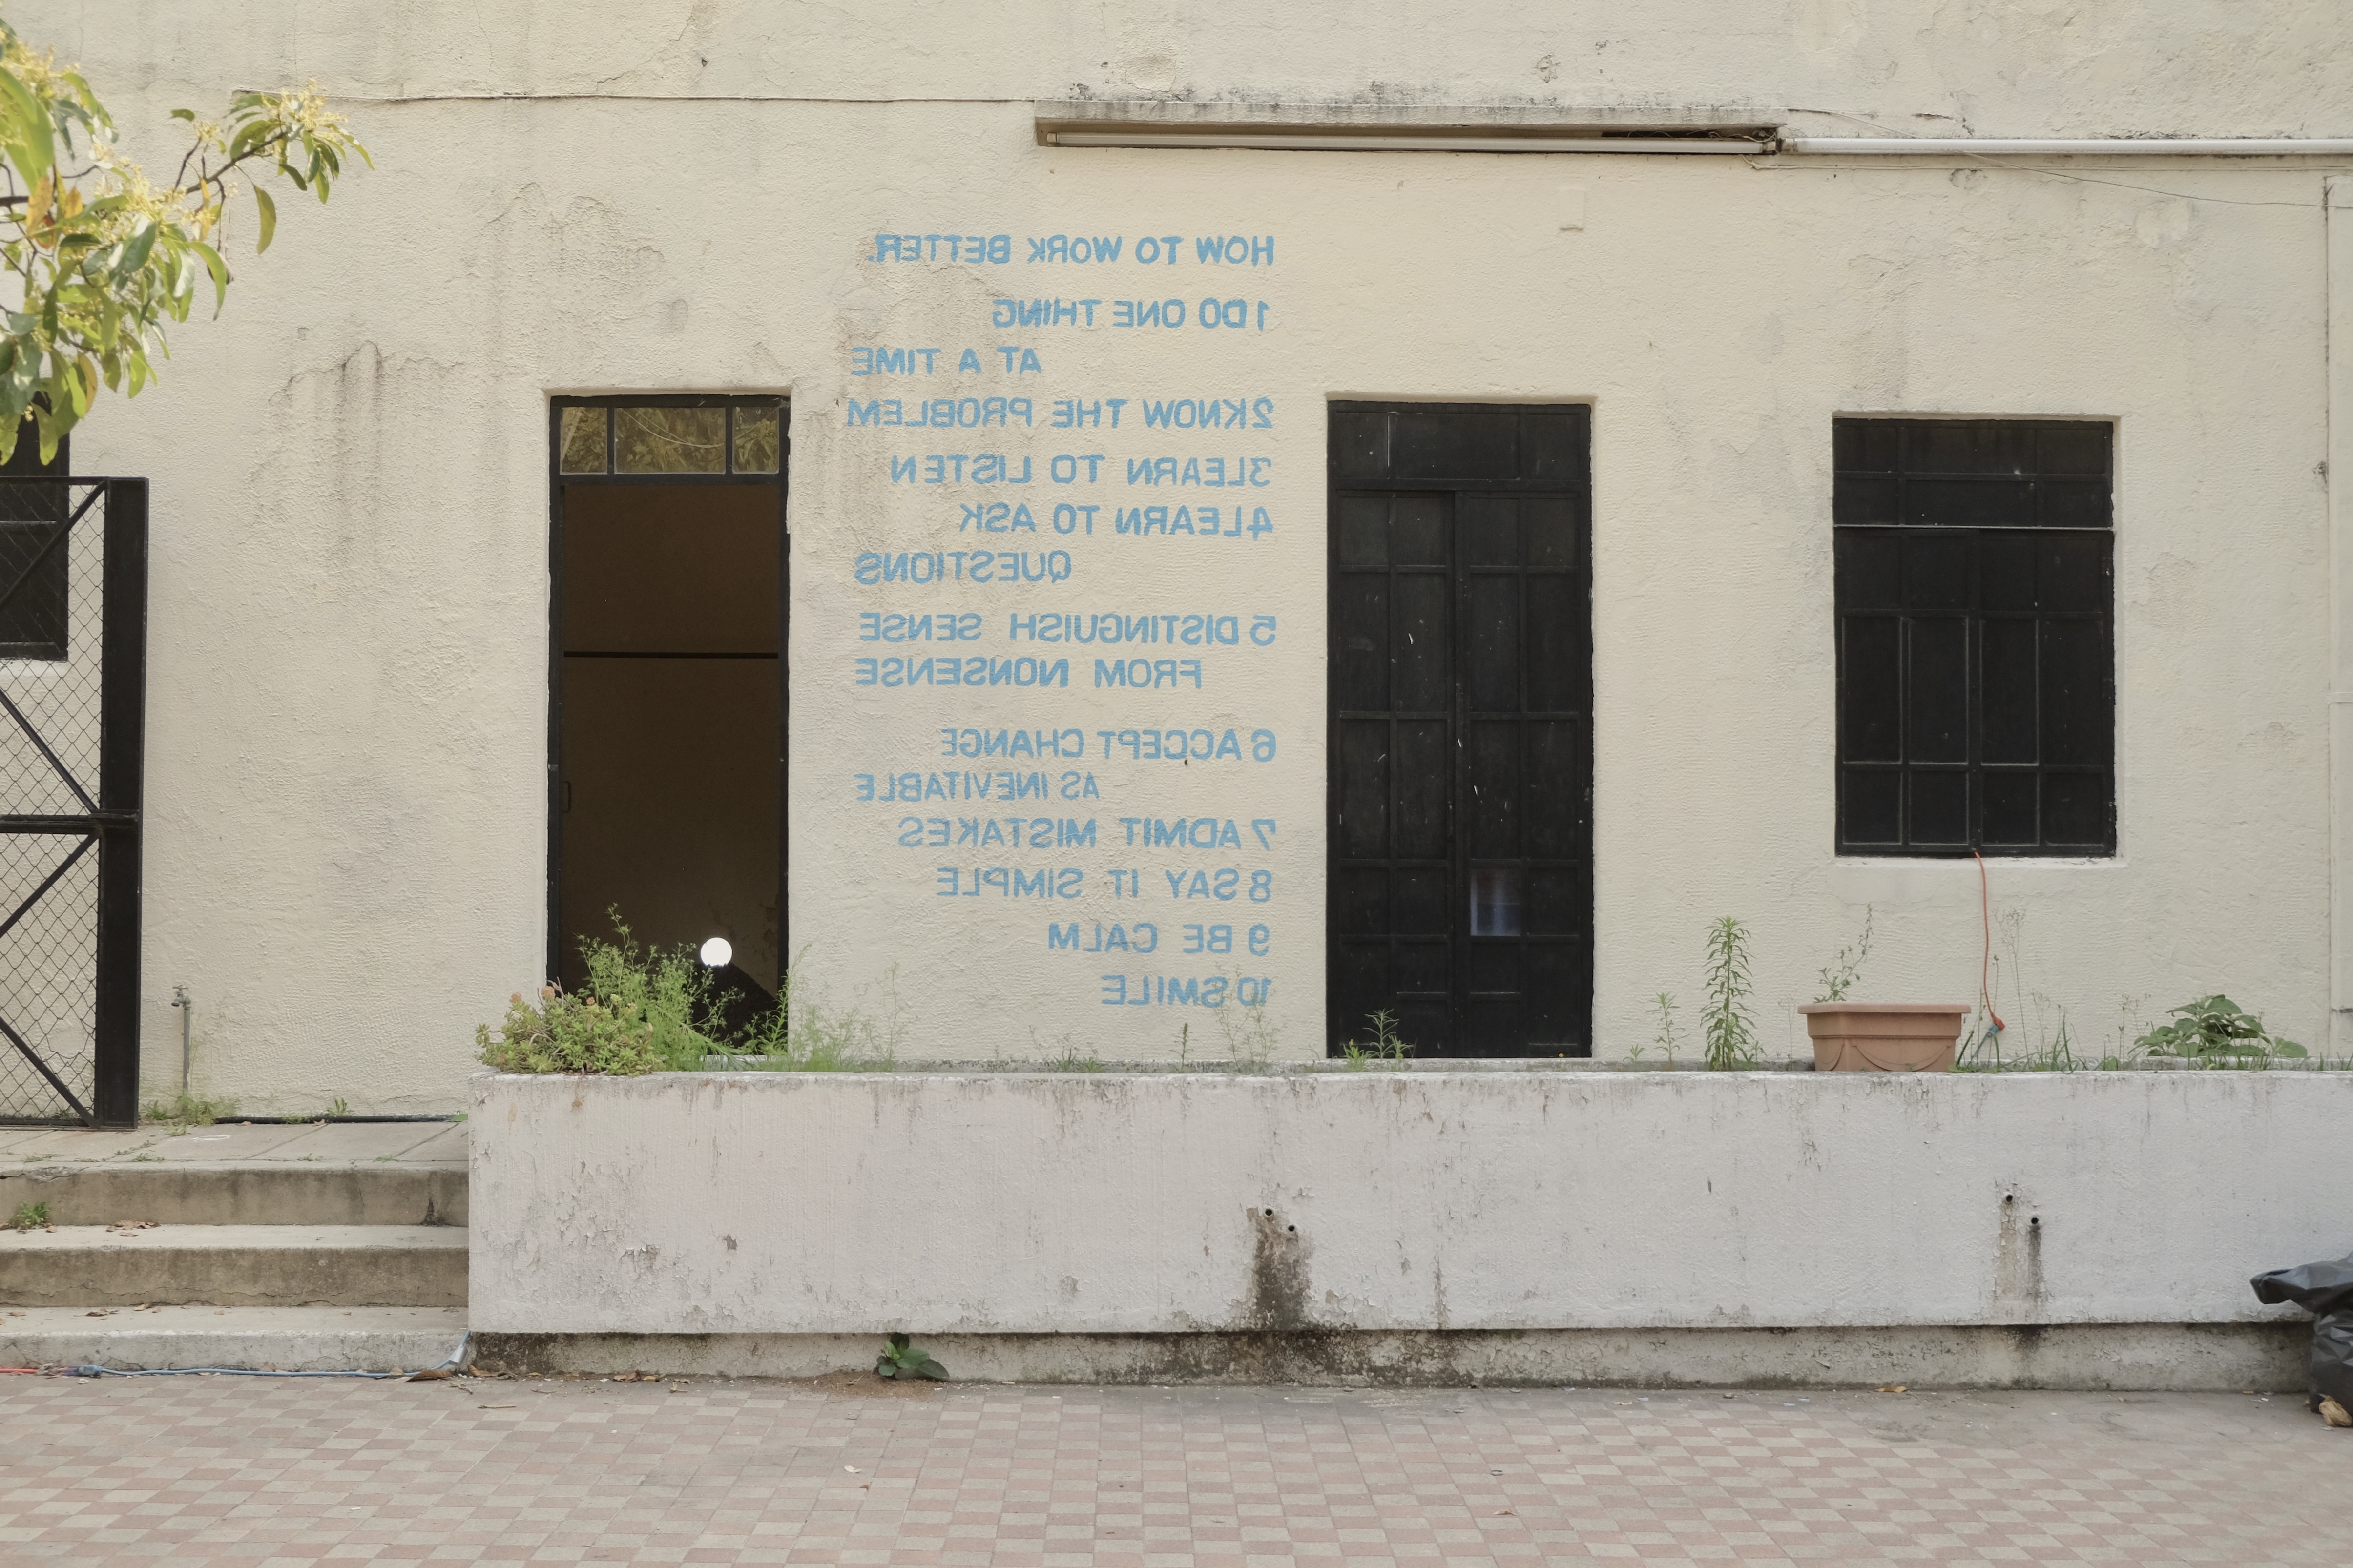 HOW TO WORK BETTER.
1 DO ONE THING
AT A TIME
2 KNOW THE PROBLEM
3 LEARN TO LISTEN
4 LEARN TO ASK
QUESTIONS
5 DISTINGUISH SENSE
FROM NONSENSE
6 ACCEPT CHANGE
AS INEVITABLE
7 ADMIT MISTAKES
8 SAY IT SIMPLE
9 BE CALM
10 SMILE